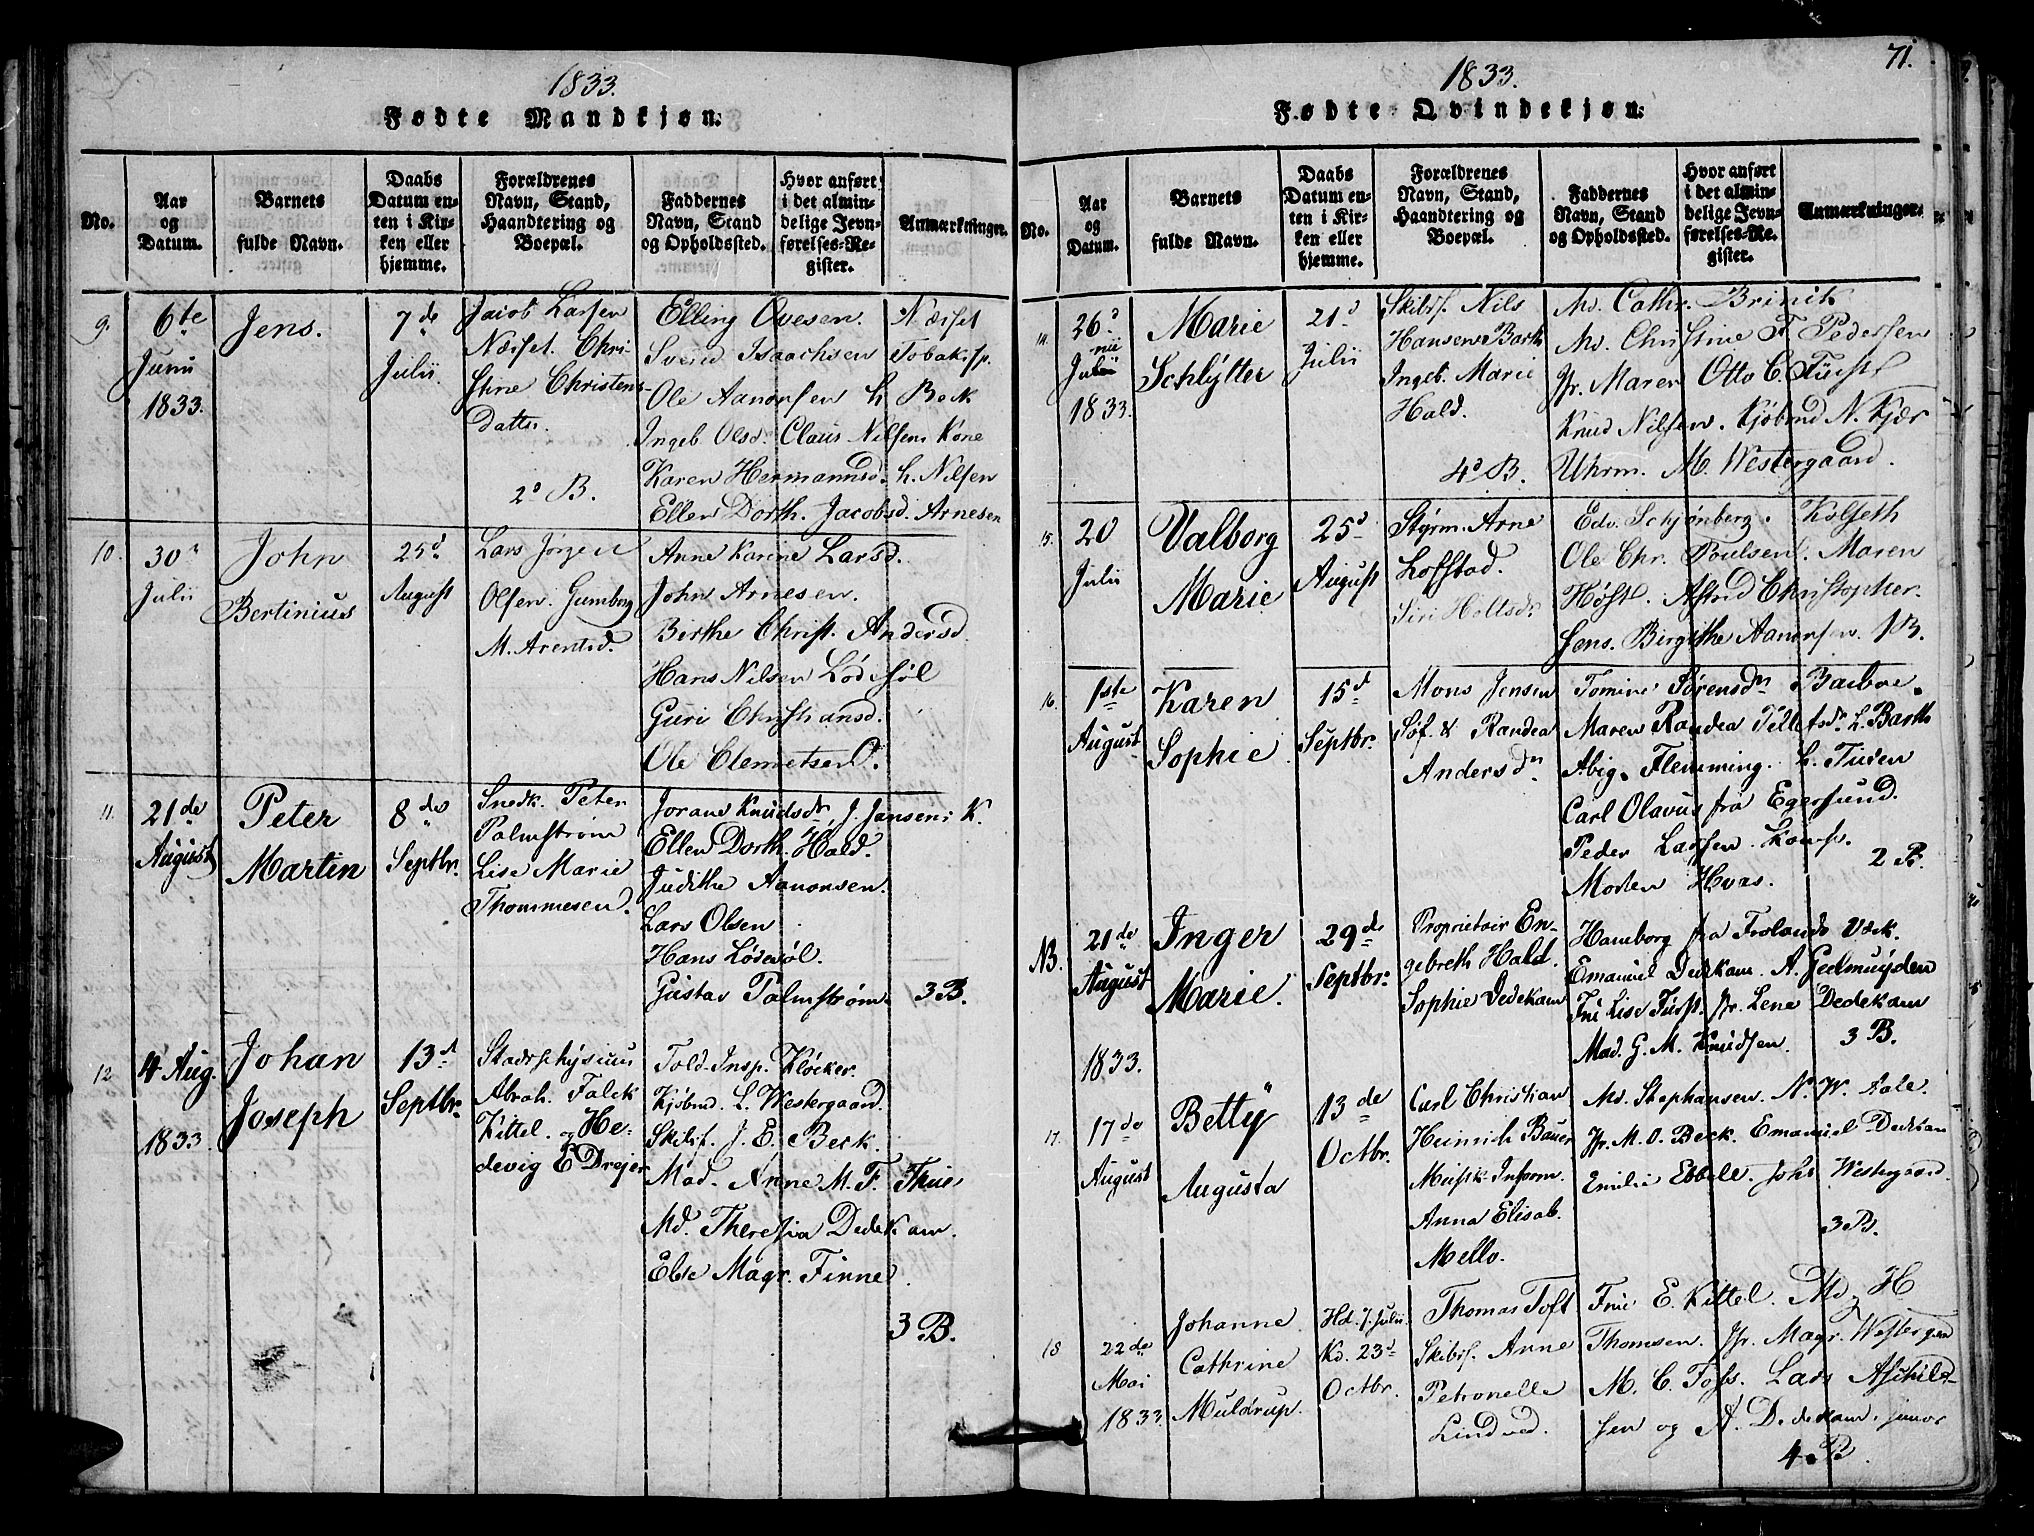 1833.
Fødte Mandkjøn.
No.
Aar og Datum.
Barnets fulde Navn.
Daabs Datum enten i Kirken eller hjemme.
Forældrenes Navn, Stand, Haandtering og Boepæl.
Faddernes Navn, Stand og Opholdssted.
Hvor anført i det almindelige Jevnførelses-Register.
Anmærkninger.
9.
6te
Junii
1833.
Jens.
7de
Julii
Jacob Larsen
Næsset. Chri-
stine Christens-
Datter
2d B.
Elling Ovesen. Næsset
Svend Isaachsen Tobaksp.
Ole Aanonsen h. Beck
Ingeb Olsd. Claus Nilsens Kone
Karen Hermannsd. h. Nilsen
Ellen Dorth. Jacobsd. Arnesen
10.
30
Julii
John
Bertinius
25d
August
Lars Jørgen
Olsen. Gunborg
M. Arentsd.
Anne Karine Larsd.
John Arnesen.
Birthe Christ. Andersd.
Hans Nilsen Lødesøl
Guri Christiansd.
Ole Clemetsen
11.
21de
August
Peter
Martin
8de
Septbr.
Snedk. Peter
Palmstrøm
Lise Marie
Thommesen.
Joran Knudsdr J. Jansens K.
Ellen Dorth. Hald.
Judithe Aanonsen.
Lars Olsen
Hans Lødesøl.
Gustav Palmstrøm. 3 B.
12
4 Aug.
1833
Johan
Joseph
13d
Septbr.
Stadsphysicus
Abrah. Falck
Kittel. og He-
devig E Drejer
Told. Insp. Kløcker.
Kjøbmd. L. Westergaard.
Skibsf. J. E. Beck.
Mad. Anne M. F. Thue
Md. Theresia Dedekam.
Else Magr. Finne.
3 B.
71.
1833.
Fødte Qvindekjøn.
No.
Aar og Datum.
Barnets fulde Navn.
Daabs Datum enten i Kirken eller hjemme.
Forældrenes Navn, Stand, Haandtering og Boepæl.
Faddernes Navn, Stand og Opholdssted.
Hvor anført i det almindelige Jevnførelses-Register.
Anmærkninger.
14.
26d
Julii
1833.
Marie
Schlytter
21d
Julii
Skibsf. Nils
Hansen Barth
Ingeb. Marie
Hald.
4d B.
Md. Cathr. Brinck
Md. Christine F. Pedersen
Jfr. Maren Otto C. Fürst
Knud Nilsen. Kjøbmd N. Kjær
Uhrm. M. Westergaard.
15.
20
Julii
Valborg
Marie
25d
August
Styrm. Arne
Loffstad.
Siri Holtsdr
Edv. Schjønberg. Kolseth
Ole Chr. Poulsen. Maren
Høst. Astrid Christopher-
sens. Birgithe Aanonsen. 1 B.
16.
1ste
August
Karen
Sophie
15d
Septbr.
Mons Jensen
Søf. & Randea
Andersdr
Tomine Sørensdr Barboe.
Maren Randea Tellefsdr L. Barth
Abig. Flemming. L. Tuxen
Carl Olavus fra Egersund.
Peder Larsen
Morten Hvas.
2 B.
NB.
21de
August
1833.
Inger
Marie.
29de
Septbr.
Proprietair En-
gebreth Hald.
Sophie Dedekam
Hamborg fra Frolands Værk.
Emanuel Dedekam. A. Gedmuyden
Fru Lise Fürst. Jfr. Lene Dedekam
Mad. G. M. Knudsen. 3 B.
17.
17de
August
Betty
Augusta
13de
Octbr.
Carl Christian
Heinrich Bauer
Musik Inform.
Anna Elisab.
Mello.
Md. Stephansen. N. W. Aale.
Jfr. M. O. Beck. Emanuel Dedekam
Emilie Ebbell. Johs Westergaard.
3 B.
18
22de
Mai
1833
Johanne
Cathrine
Muldrup.
Hd. 7. Julii
Kd. 23d
Octbr.
Thomas Toft
Skibsf. Anne
Petronelle
Lindved.
Frue E. Kittel. Md. H
Thomsen. Jfr. Magr. Westergaard
M. C. Foss. Lars Aschild-
sen og A. Dedekam. junior
4. B.